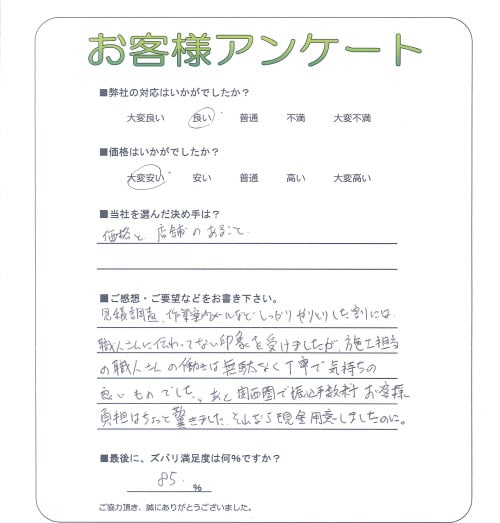 お客様アンケート
■弊社の対応はいかがでしたか？
大変良い 良い 普通 不満 大変不満
■価格はいかがでしたか？
大変安い 安い 普通 高い 大変高い
■当社を選んだ決め手は？
価格と店舗のあること。
■ご感想・ご要望などをお書き下さい。
見積調査、作業案内メールなどしっかりやりとりした割には
職人さんに伝わってない印象を受けましたが、施工担当
の職人さんの働きは無駄なく丁寧で気持ちの
良いものでした。あと関西圏で振込手数料お客様
負担はちょっと驚きました。そんなら現金用意しましたのに。
■最後に、ズバリ満足度は何%ですか？
85. %
ご協力頂き、誠にありがとうございました。